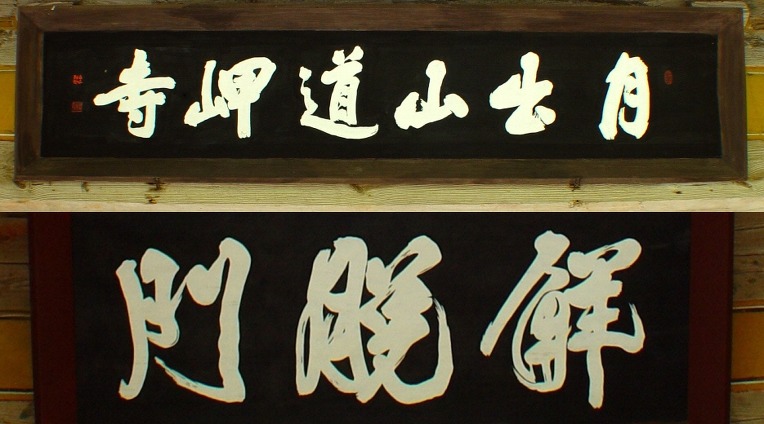 月出山道岬寺
解脫門